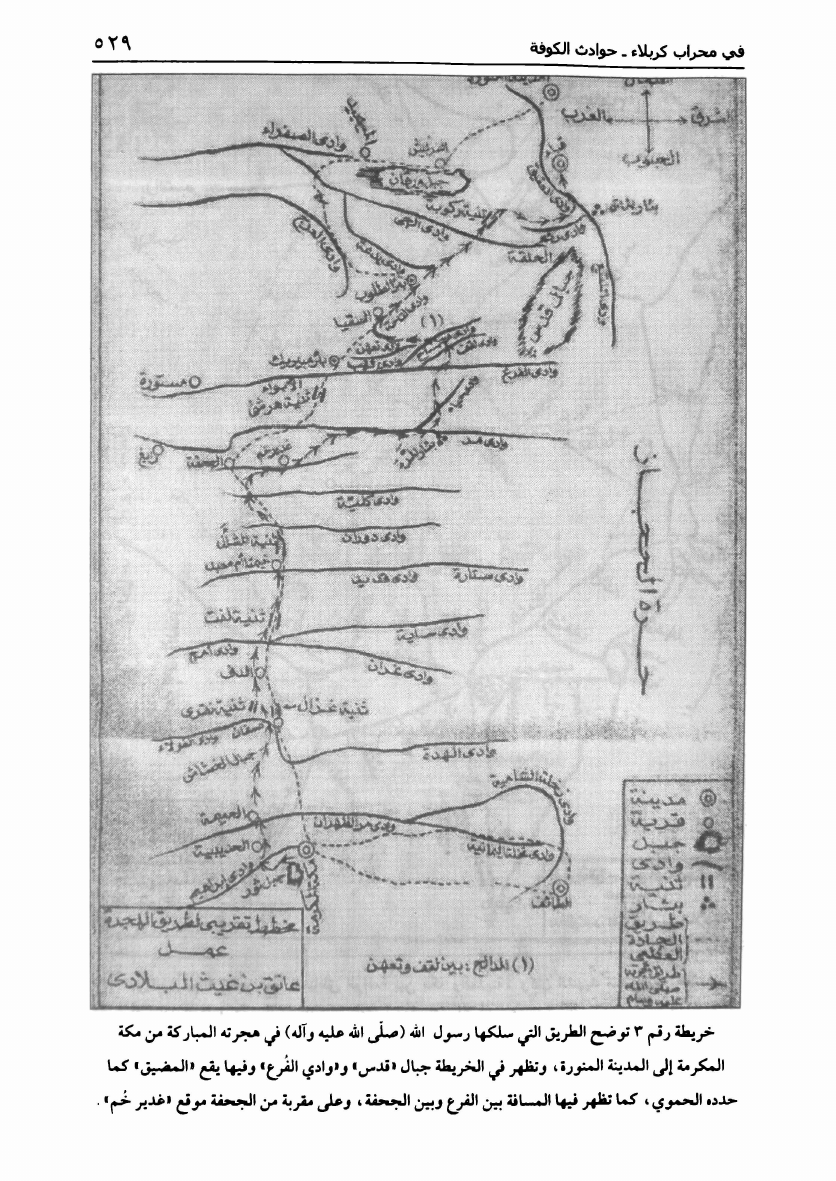 في محراب كربلاء ـ حوادث الكوفة
٥٢٩
الشرق
الغرب
الجنوب
وادي الصفراء
وادي العرج
الحلقة
جبال قدس
السقيا
(١)
وادي الفرع
مستورة
الأبواء
ثنية هرشى
رابغ
الجحفة
غدير خم
وادي كلية
وادي دوران
ثنية المشلل
خيمتا أم معبد
وادي قديد
وادي ستارة
ثنية لفت
وادي ساية
وادي أمج
وادي غران
الدف
ثنية غزال
عسفان
وادي الهدة
وادي نخلة الشامية
وادي مر الظهران
وادي نخلة اليمانية
الحديبية
وادي ابراهيم
جبل ثور
مكة المكرمة
الطائف
حرة الحجاز
مدينة
قرية
جبل
وادي
ثنية
بئار
طريق
الجادة
العظمى
مخطط تقريبي لطريق الهجرة
عمل
عاتق بن غيث البلادي
(١) المدالج : بين لقف وتعهن
خريطة رقم ٣ توضح الطريق التي سلكها رسول الله (صلّى الله عليه وآله) في هجرته المباركة من مكة
المكرمة إلى المدينة المنورة، وتظهر في الخريطة جبال «قدس» و«وادي الفُرع» وفيها يقع «المضيق» كما
حدده الحموي، كما تظهر فيها المسافة بين الفرع وبين الجحفة، وعلى مقربة من الجحفة موقع «غدير خُم».